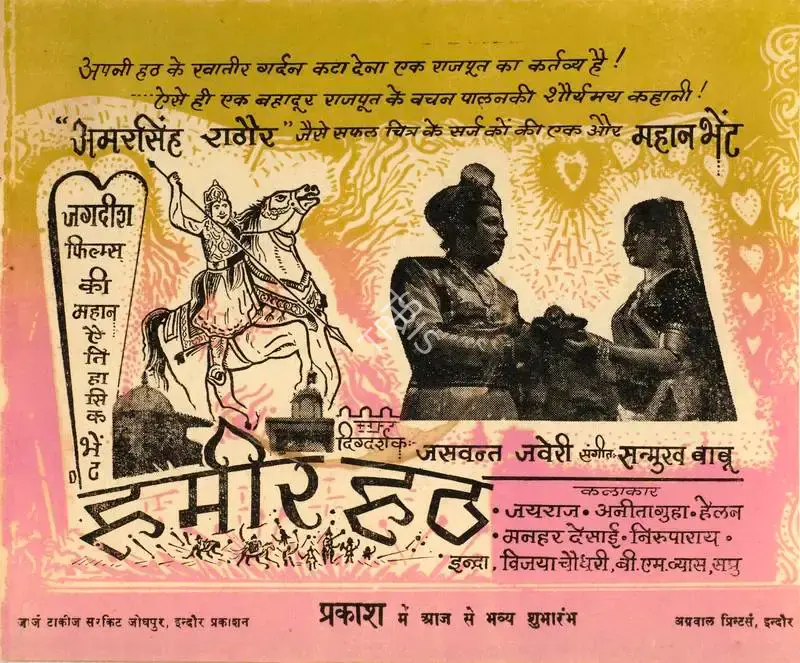 अपनी हठ के खातीर गर्दन कटा देना एक राजपूत का कर्तव्य है!
ऐसे ही एक बहादूर राजपूत के वचन पालनकी शौर्यमय कहानी!
"अमरसिंह राठौर" जैसे सफल चित्र के सर्जकों की एक और महान भेंट
जगदीश
फिल्म्स्
की
महान
ऐ
ति
हा
सि
क
भेंट
दिग्दर्शकः जसवन्त जवेरी संगीतः सन्मुख बाबू
हमीर हठ
कलाकार
• जयराज • अनीतागुहा • हेलन
• मनहर देसाई • निरुपाराय •
इन्द्रा, विजया चौधरी, बी.एम.व्यास, सप्रु
जार्ज टाकीज सरकिट जोधपुर, इन्दौर प्रकाशन
प्रकाश में आज से भव्य शुभारंभ
अग्रवाल प्रिन्टर्स, इन्दौर